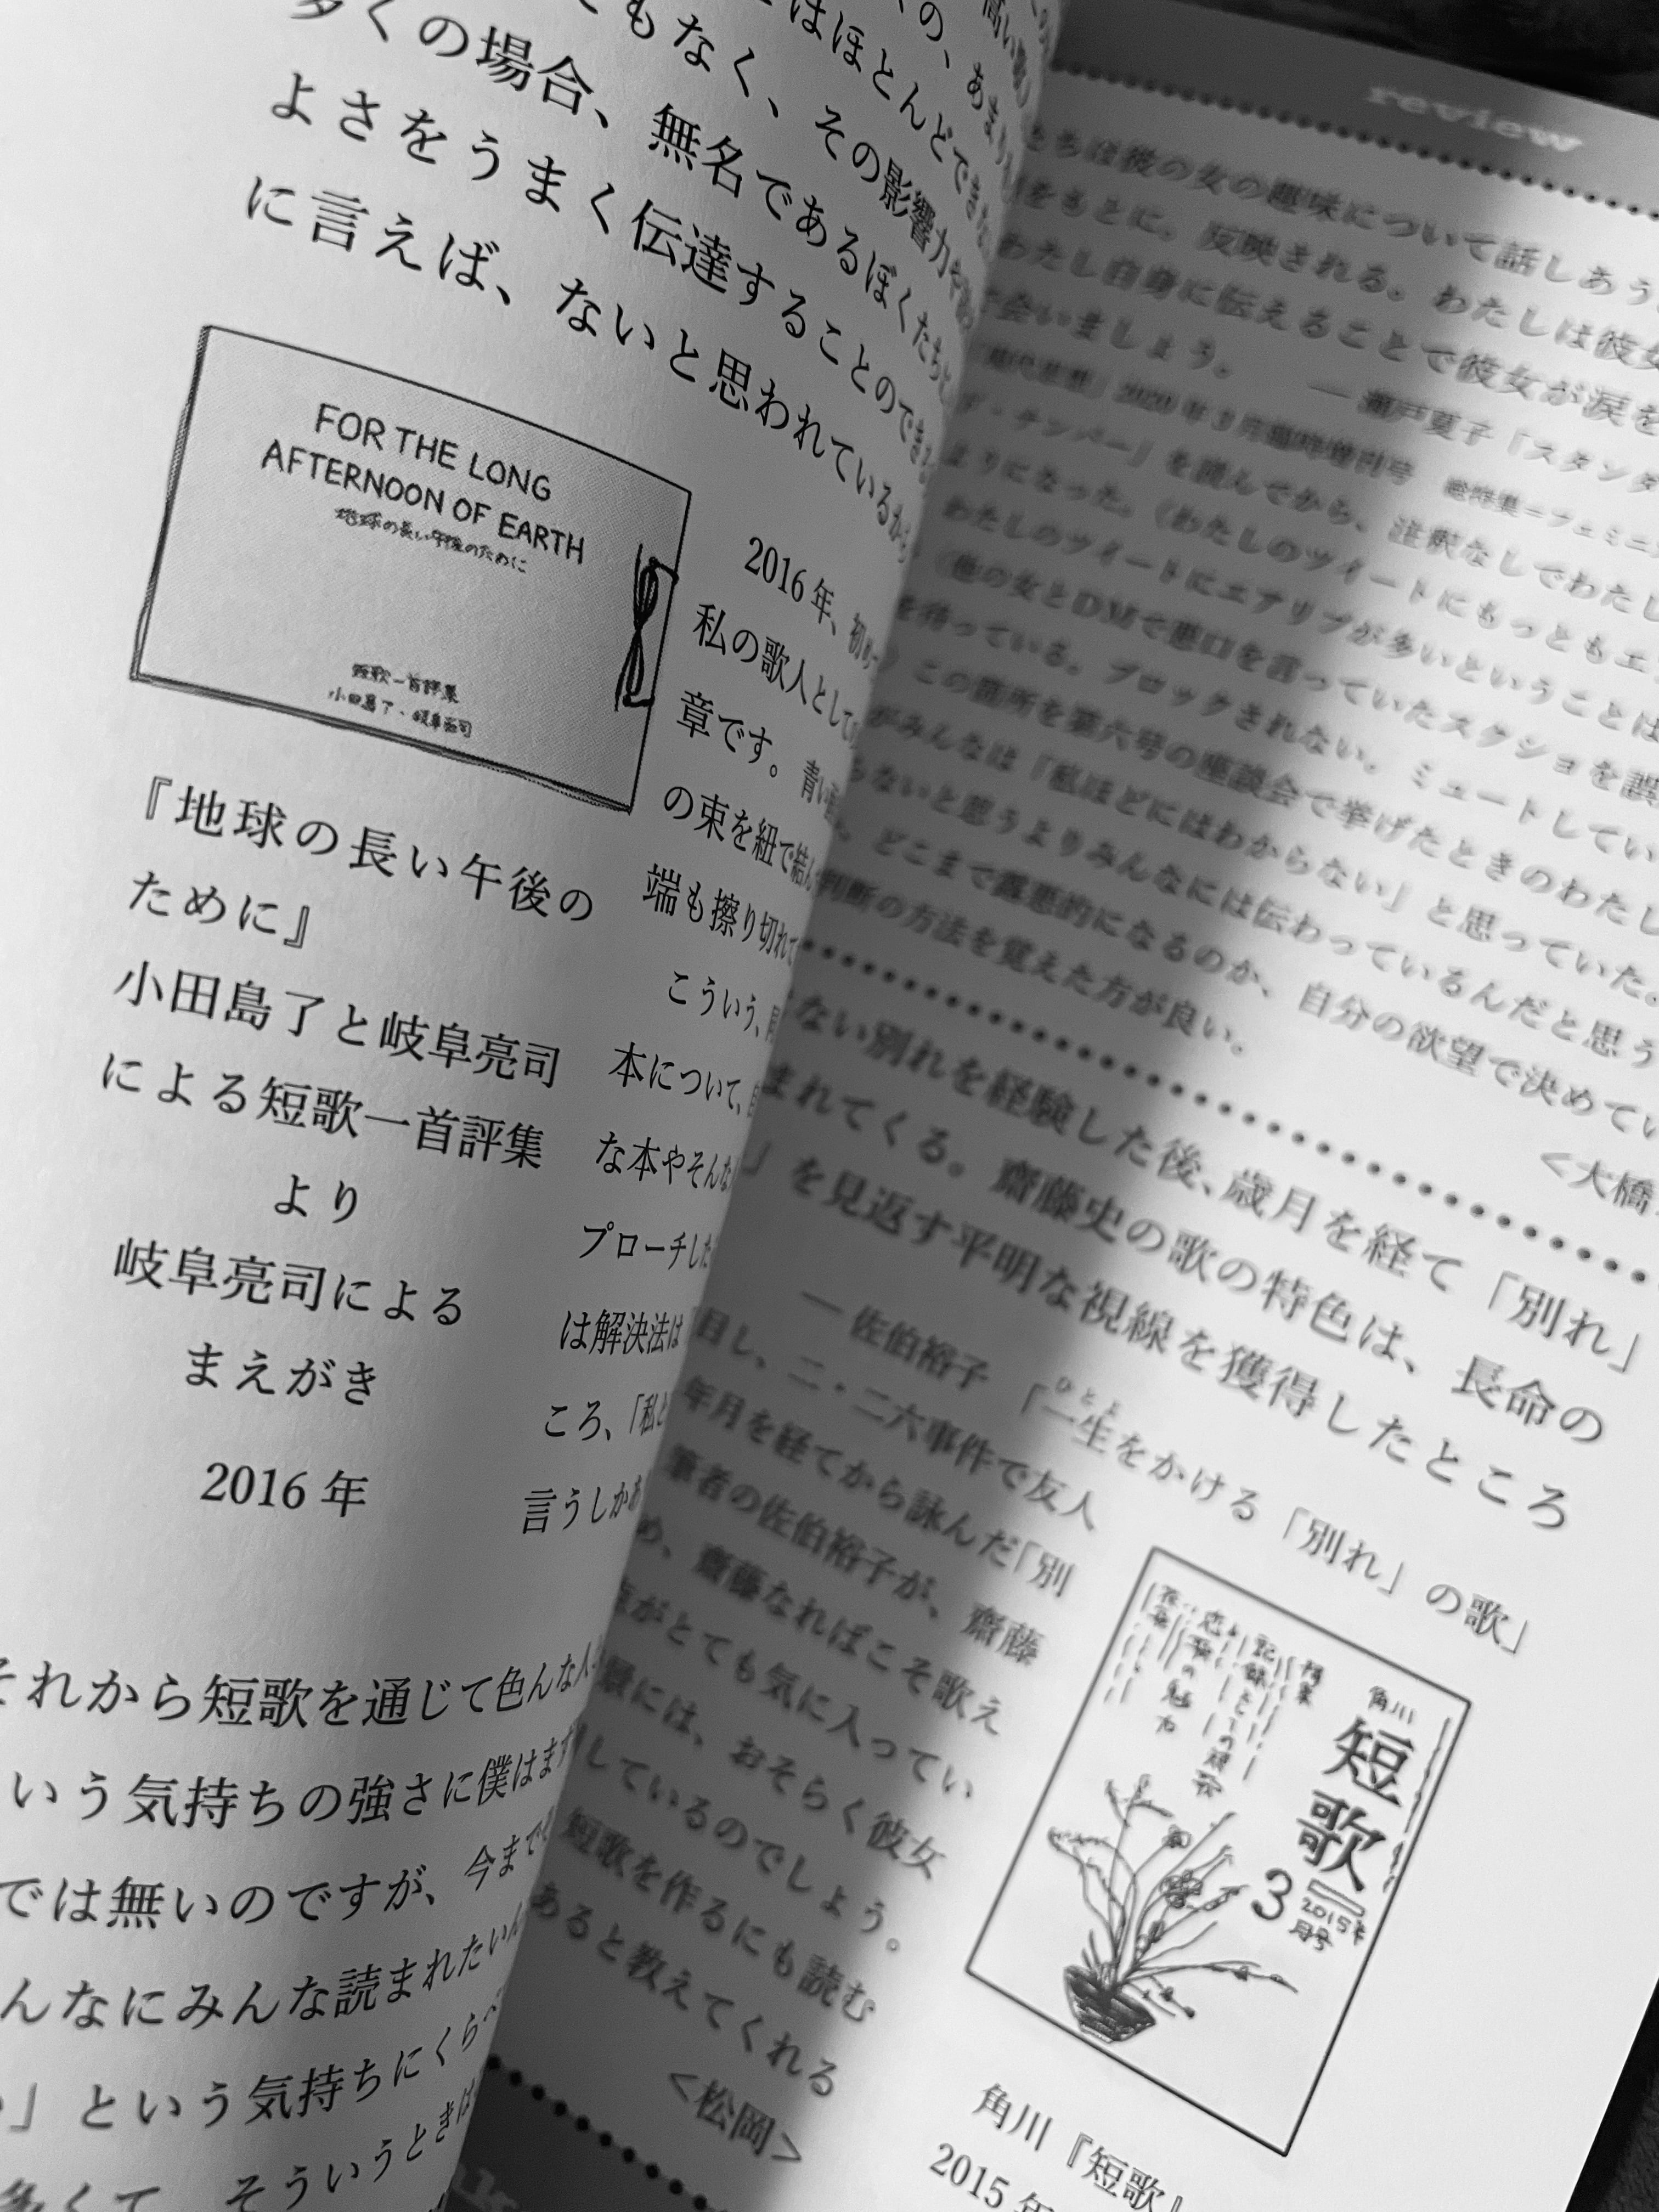 多くの場合、無名であるぼくたちに
よさをうまく伝達することのできる
に言えば、ないと思われているから
もなく、その影響力や
はほとんどでき
FOR THE LONG
AFTERNOON OF EARTH
地球の長い午後のために
短歌一首評集
小田島了・岐阜亮司
『地球の長い午後の
ために』
小田島了と岐阜亮司
による短歌一首評集
より
岐阜亮司による
まえがき
2016 年
2016 年、初めて
私の歌人として
章です。青い
の束を紐で結ん
端も擦り切れて
こういう、
本について、
な本やそんな
プローチした
は解決法は
ころ、「私
言うしかあ
それから短歌を通じて色んな人
いう気持ちの強さに僕はまず
では無いのですが、今まで
んなにみんな読まれたいん
」という気持ちにくらべ
多くて、そういうときは
review
たちは彼の女の趣味について話しあう
をもとに。反映される。わたしは彼女
わたし自身に伝えることで彼女が涙を
会いましょう。
― 瀬戸夏子「スタンダ
2020 年 3 月臨時増刊号 総特集＝フェミニ
・テンパー」を読んでから、注釈なしでわたし
ようになった。（わたしのツイートにもっともエ
わたしのツイートにエアリプが多いということは
（他の女とDMで悪口を言っていたスクショを誤
を待っている。ブロックされない。ミュートしてい
）この箇所を第六号の座談会で挙げたときのわたし
がみんなは「私ほどにはわからない」と思っていた。
らないと思うよりみんなには伝わっているんだと思う
。どこまで露悪的になるのか、自分の欲望で決めてい
判断の方法を覚えた方が良い。
＜大橋
ない別れを経験した後、歳月を経て「別れ」
まれてくる。齋藤史の歌の特色は、長命の
」を見返す平明な視線を獲得したところ
― 佐伯裕子 「一生をかける「別れ」の歌」
ひとよ
目し、二・二六事件で友人
年月を経てから詠んだ「別
筆者の佐伯裕子が、齋藤
め、齋藤なればこそ歌え
がとても気に入ってい
には、おそらく彼女
しているのでしょう。
短歌を作るにも読む
あると教えてくれる
＜松岡＞
角川
短歌
2015年
3月号
特集
角川『短歌』
2015 年